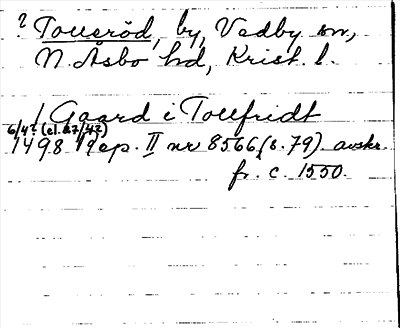 ? Tolleröd, by, Vedby sn,
N. Åsbo hd, Krist. l.
1 Gaard i Tollfridt
6/4? (el. 27/4?)
1498 Rep. II nr 8566 (s. 79). avskr.
fr. c. 1550.